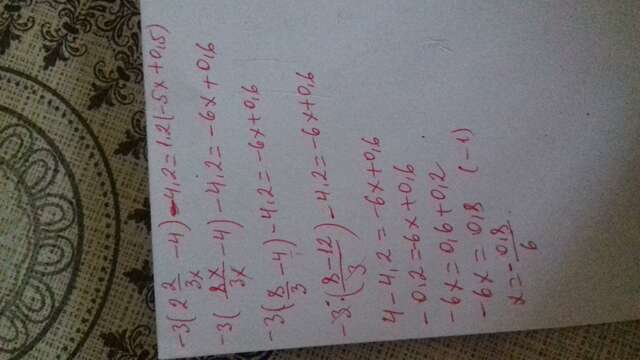 -3(2 2/3x -4) -4,2=1.2(-5x+0,5)
-3(8x/3x -4) -4,2=-6x+0,6
-3(8/3 -4) -4,2=-6x+0,6
-3·(8-12/3) -4,2=-6x+0,6
4-4,2=-6x+0,6
-0,2=6x+0,6
-6x=0,6+0,2
-6x=0,8 (-1)
x=-0,8/6